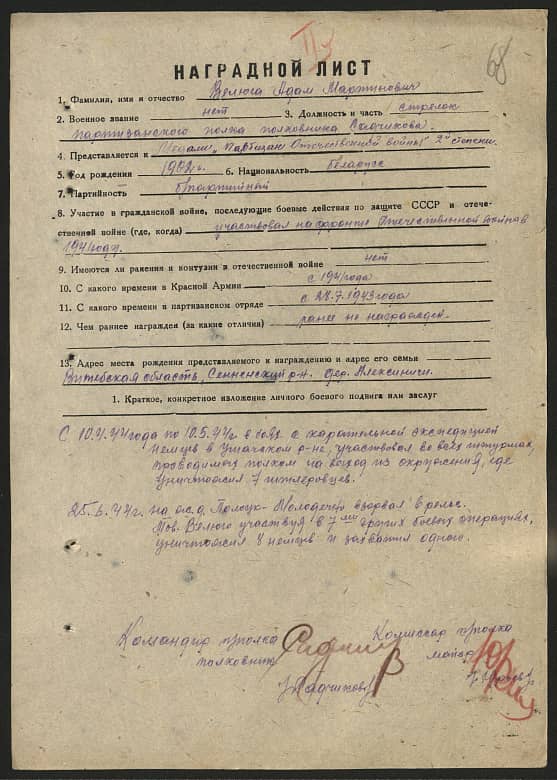 68
НАГРАДНОЙ ЛИСТ
1. Фамилия, имя и отчество Велюга Адам Мартинович
2. Военное звание нет 3. Должность и часть стрелок
партизанского полка полковника Садчикова.
4. Представляется к Медали „Партизан Отечественной войны" 2й степени.
5. Год рождения 1902г. 6. Национальность беларусс
7. Партийность б/партийный
8. Участие в гражданской войне, последующие боевые действия по защите СССР и отече-
ственной войне (где, когда) участвовал на фронте Отечественной войны в
1941 году.
9. Имеются ли ранения и контузии в отечественной войне нет
10. С какого времени в Красной Армии с 1941 года
11. С какого времени в партизанском отряде с 28.7.1943 года
12. Чем раннее награжден (за какие отличия) ранее не награжден.
13. Адрес места рождения представляемого к награждению и адрес его семьи
Витебская область, Сенненский р-н. дер. Алексиничи.
1. Краткое, конкретное изложение личного боевого подвига или заслуг
С 10.4.44 года по 10.5.44г в боях с карательной экспедицией
немцев в Ушачском р-не, участвовал во всех штурмах
проводимых полком на выход из окружения, где
уничтожил 7 гитлеровцев.
25.6.44г. на ж.д. Полоцк-Молодечно взорвал 6 рельс.
Тов. Велюго участвуя в 7ми других боевых операциях,
уничтожил 8 немцев и захватил одного.
Командир п/полка Комиссар п/полка
полковник майор
/Садчиков/